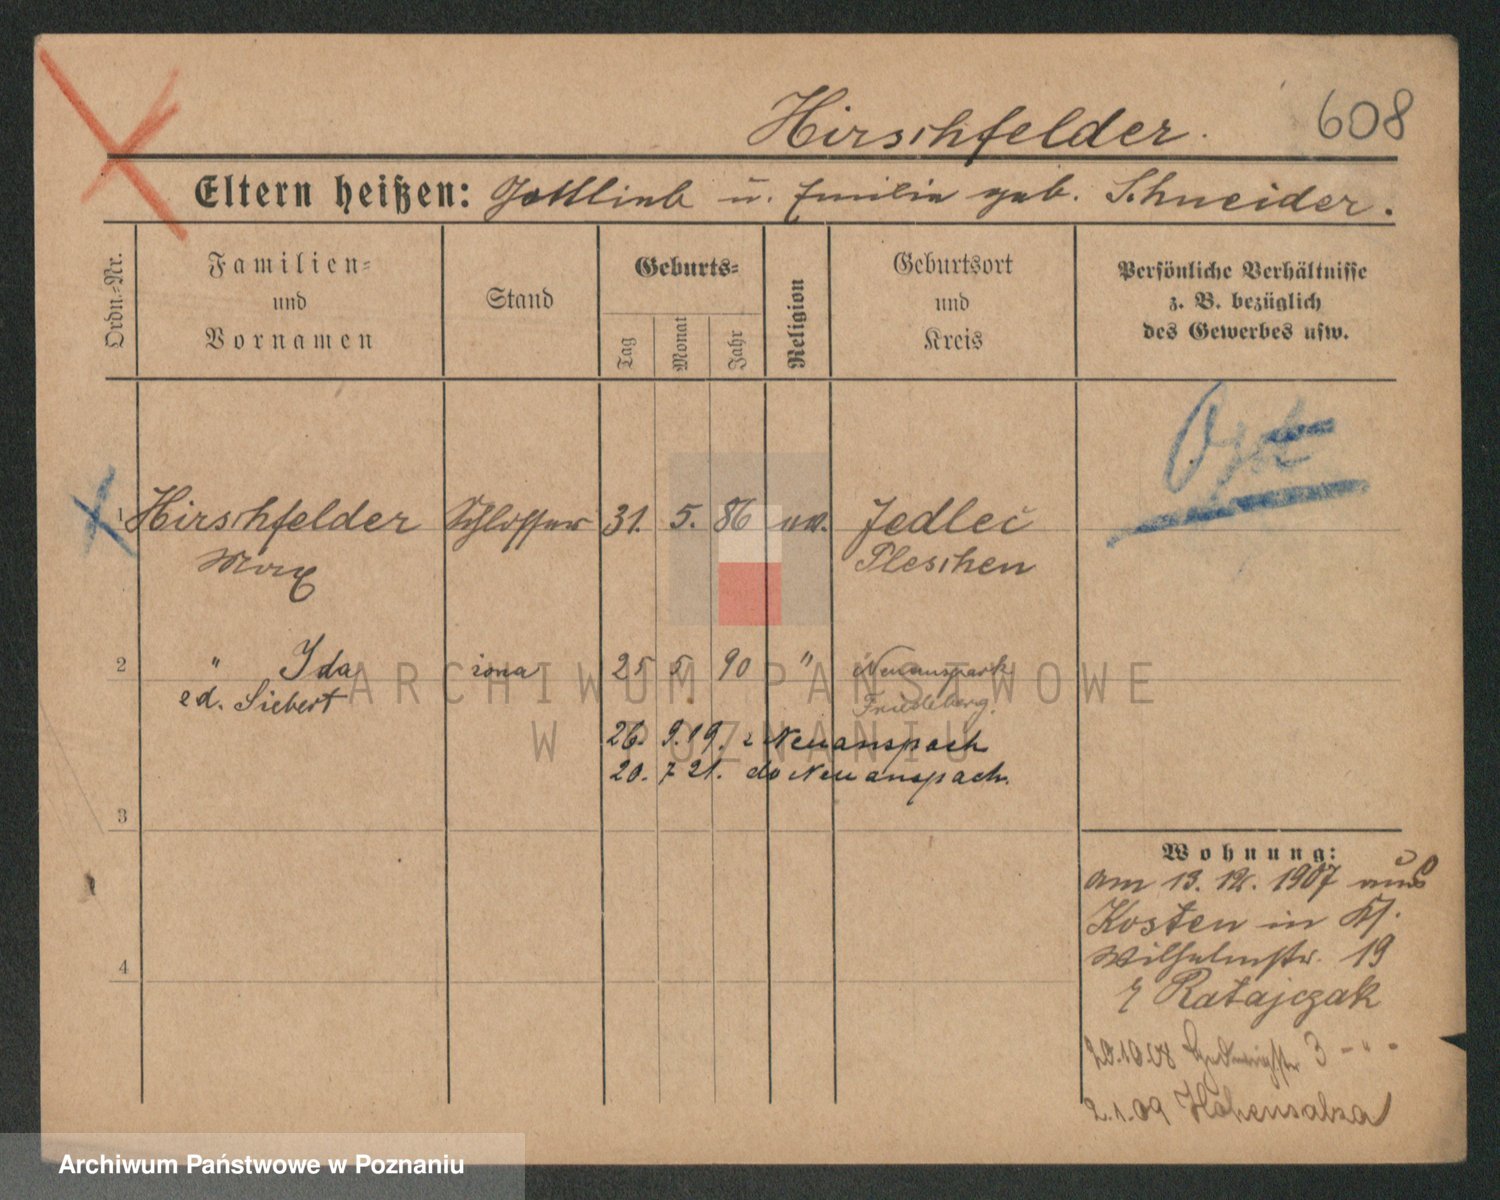 Hirschfelder.
608
Eltern heißen: Gottlieb u. Emilie geb. Schneider.
Ordn.-Nr.
Familien- und Vornamen
Stand
Geburts-
Tag
Monat
Jahr
Religion
Geburtsort und Kreis
Persönliche Verhältnisse
z. B. bezüglich
des Gewerbes usw.
1 Hirschfelder Schlosser 31. 5. 86 ev. Jedleč
Max Pleschen
2 " Ida żona 25 5 90 " Neuanspach
ed. Siebert Friedeberg.
26. 9. 19. z Neuanspach
20. 7 21. do Neuanspach.
3
4
Wohnung:
am 13. 12. 1907 aus
Kosten in
Wilhelmstr. 19
Ratajczak
20.10.08 Hedwigstr 3 - " -
2.1.09 Hohensalza
ARCHIWUM PAŃSTWOWE
W POZNANIU
Archiwum Państwowe w Poznaniu